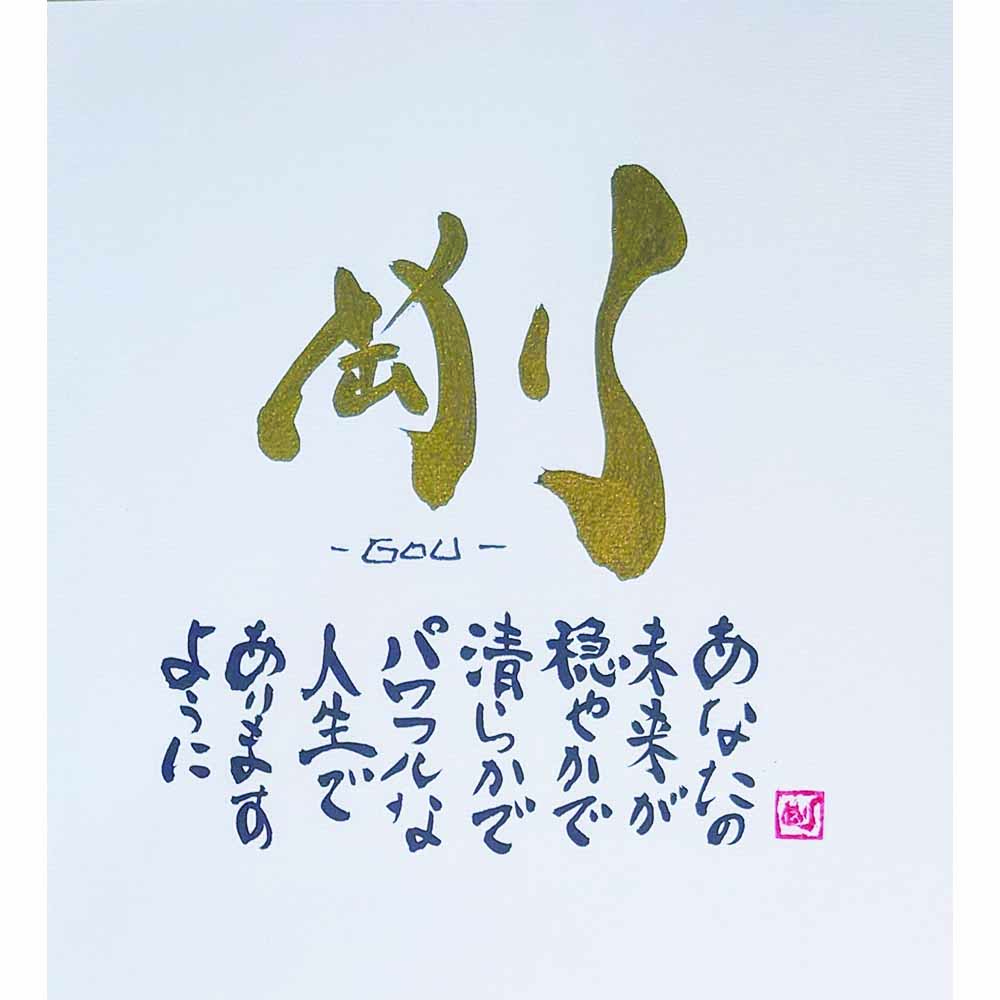 剛
-GOU-
あなたの
未来が
穏やかで
清らかで
パワフルな
人生で
あります
ように
剛